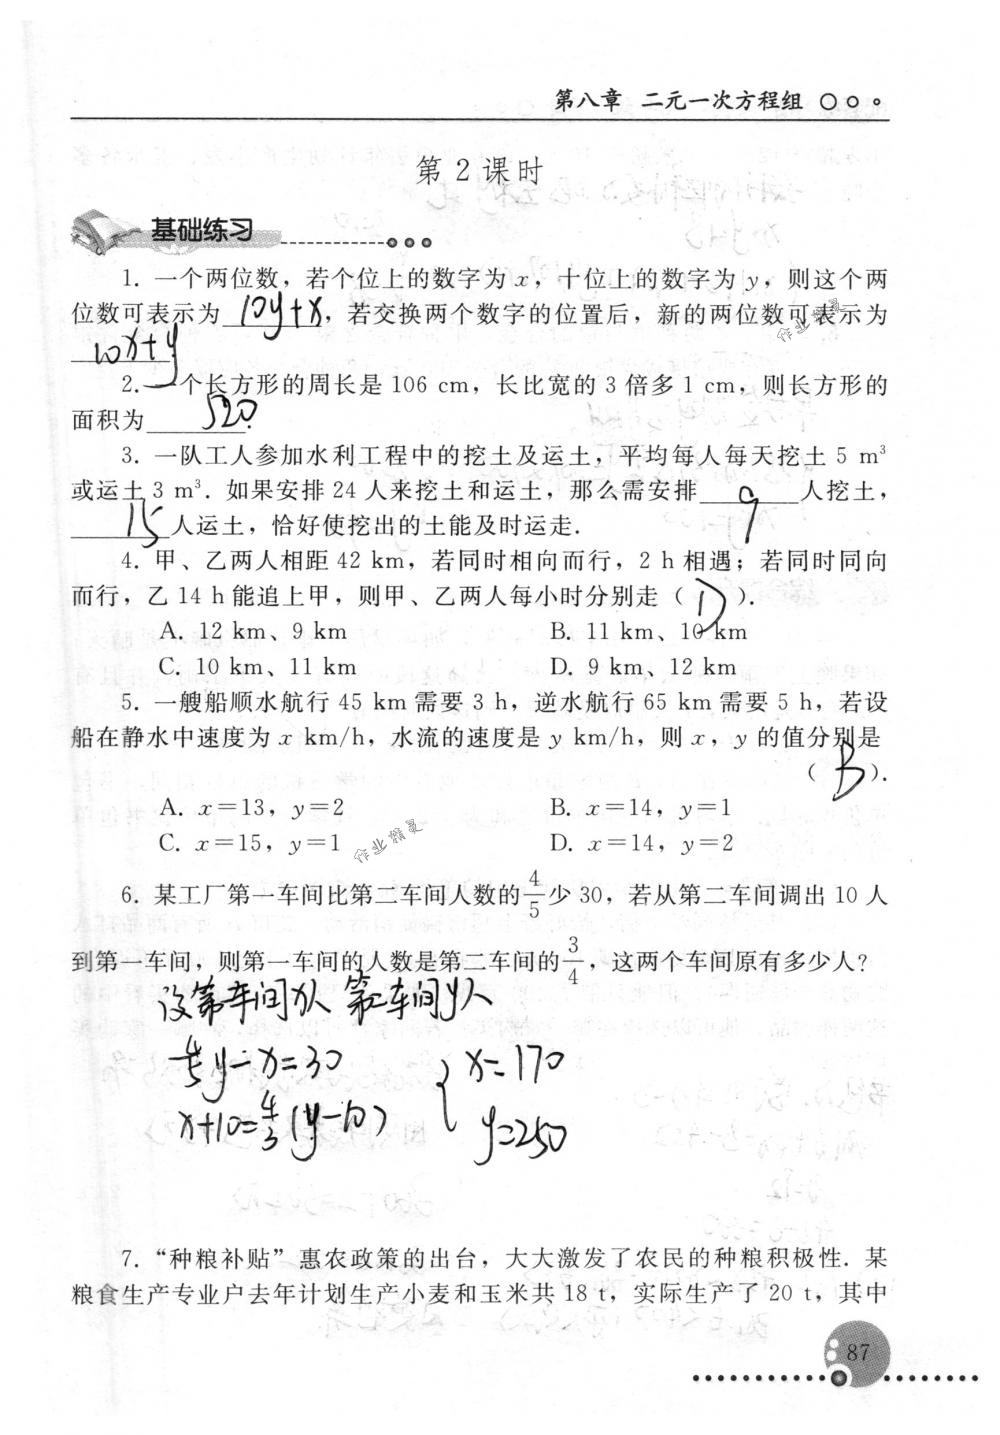 第八章 二元一次方程组
第2课时
基础练习
1. 一个两位数，若个位上的数字为 x，十位上的数字为 y，则这个两
位数可表示为 10y+x，若交换两个数字的位置后，新的两位数可表示为
10x+y
2. 一个长方形的周长是 106 cm，长比宽的 3 倍多 1 cm，则长方形的
面积为 520.
3. 一队工人参加水利工程中的挖土及运土，平均每人每天挖土 5 m³
或运土 3 m³. 如果安排 24 人来挖土和运土，那么需安排 9 人挖土，
15 人运土，恰好使挖出的土能及时运走.
4. 甲、乙两人相距 42 km，若同时相向而行，2 h 相遇；若同时同向
而行，乙 14 h 能追上甲，则甲、乙两人每小时分别走（ D ）.
A. 12 km、9 km B. 11 km、10 km
C. 10 km、11 km D. 9 km、12 km
5. 一艘船顺水航行 45 km 需要 3 h，逆水航行 65 km 需要 5 h，若设
船在静水中速度为 x km/h，水流的速度是 y km/h，则 x，y 的值分别是
（ B ）.
A. x=13，y=2 B. x=14，y=1
C. x=15，y=1 D. x=14，y=2
作业精灵
作业精灵
6. 某工厂第一车间比第二车间人数的 4/5 少 30，若从第二车间调出 10 人
到第一车间，则第一车间的人数是第二车间的 3/4，这两个车间原有多少人？
设第一车间x人 第二车间y人
4/5y-x=30 { x=170
x+10=4/3(y-10) y=250
7. “种粮补贴”惠农政策的出台，大大激发了农民的种粮积极性. 某
粮食生产专业户去年计划生产小麦和玉米共 18 t，实际生产了 20 t，其中
87